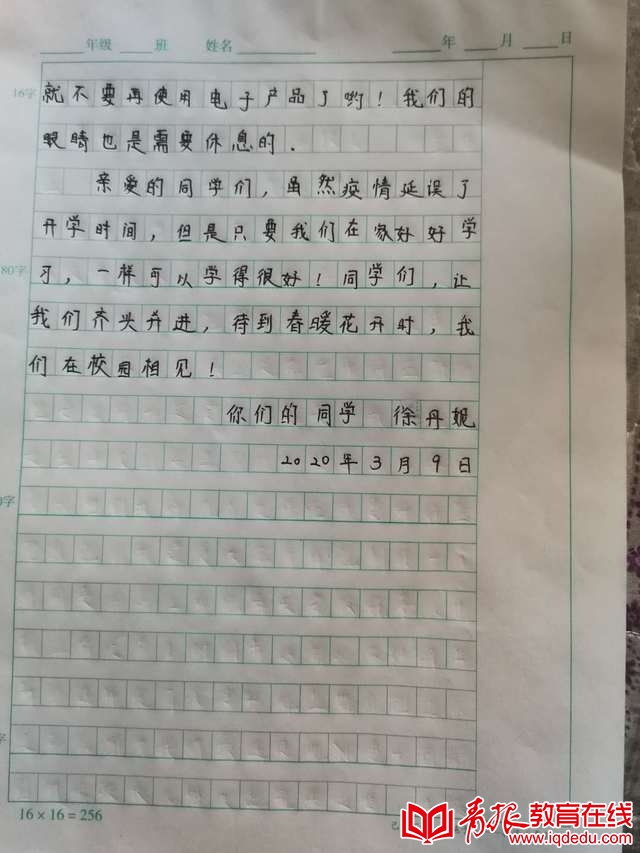 年级 班 姓名 年 月 日
16字
就不要再使用电子产品了哟！我们的
眼睛也是需要休息的.
亲爱的同学们，虽然疫情延误了
开学时间，但是只要我们在家好好学
80字
习，一样可以学得很好！同学们，让
我们齐头并进，待到春暖花开时，我
们在校园相见！
你们的同学 徐丹妮
2020年3月9日
字
字
16×16=256
青报教育在线
www.iqdedu.com